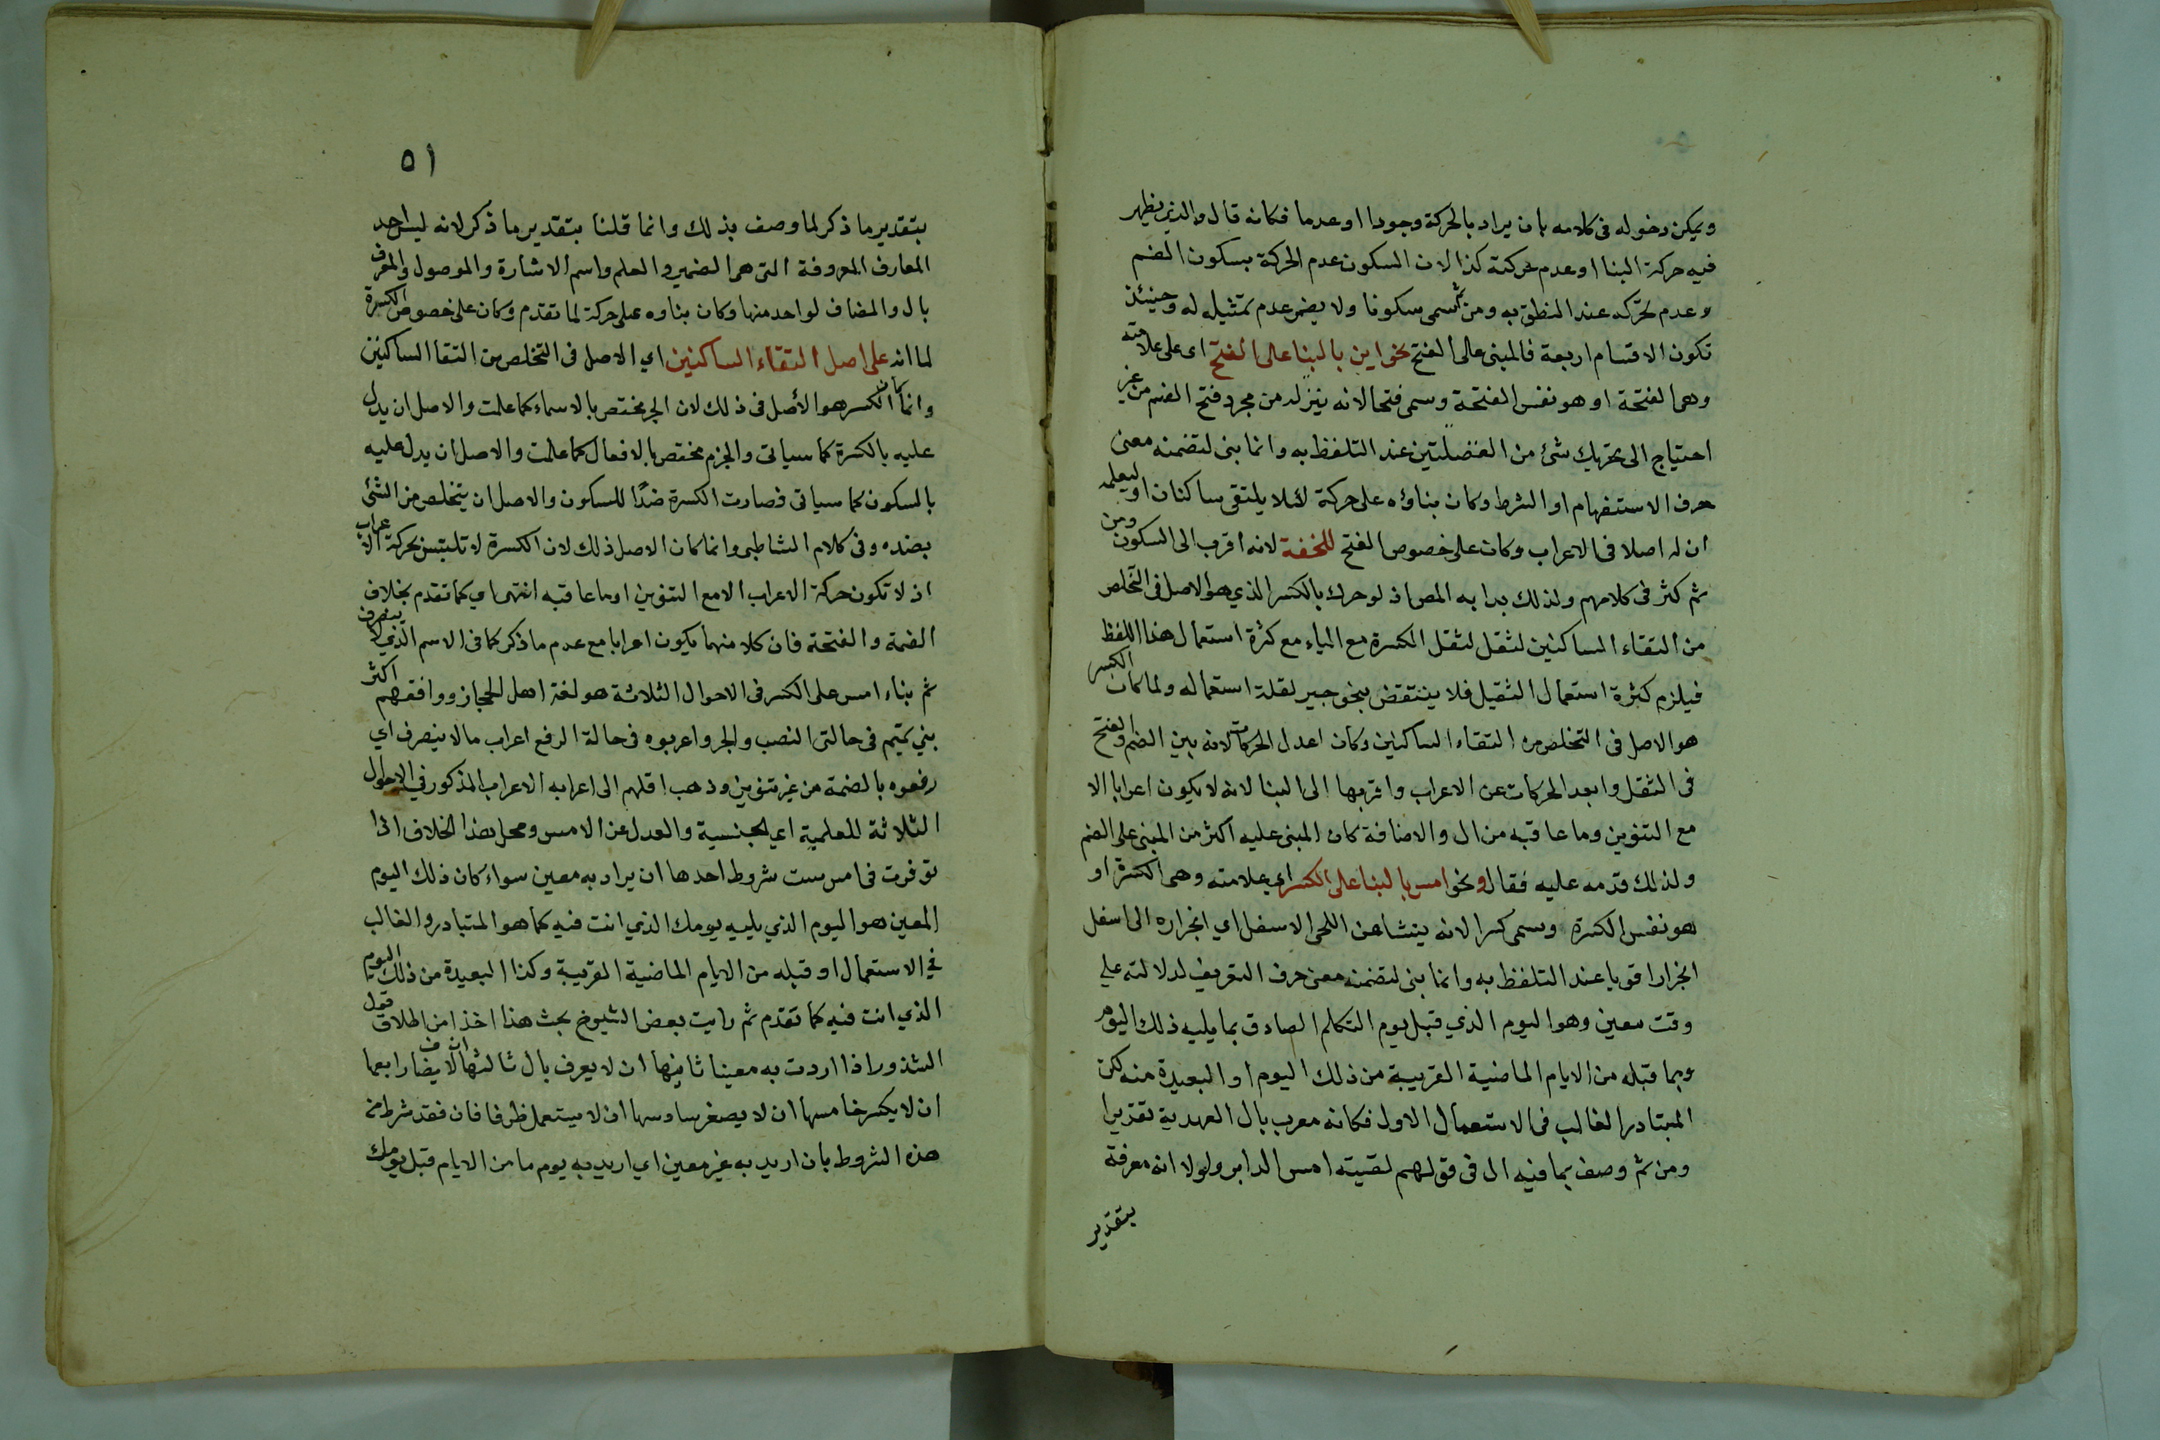 ويمكن دخوله فى كلامه بان يراد بالحركة وجودا او عدما فكانه قال والذي يظهر
فيه حركة البنا او عدم حركته كذا لان السكون عدم الحركة بسكون الضم
وعدم تحركه عند النطق به ومن ثم سمى سكونا ولا يضر عدم تمثيله له وحينئذ
تكون الاقسام اربعة فالمبنى على الفتح نحو اين بالبنا على الفتح اى على علامته
وهى الفتحة او هو نفس الفتحة وسمى فتحا لانه يتولد من مجرد فتح الفم من غير
احتياج الى تحريك شئ من العضلتين عند التلفظ به وانما بنى لتضمنه معنى
حرف الاستفهام او الشرط وكان بناؤه على حركة لئلا يلتقى ساكنان او ليعلم
ان له اصلا فى الاعراب وكان على خصوص الفتح للخفة لانه اقرب الى السكون ومن
ثم كثر فى كلامهم ولذلك بدا به المص اذ لو حرك بالكسر الذي هو الاصل فى التخلص
من التقاء الساكنين لثقل لثقل الكسرة مع الياء مع كثرة استعمال هذا اللفظ
فيلزم كثرة استعمال الثقيل فلا ينتقض بنحو جير لقلة استعماله ولما كان الكسر
هو الاصل فى التخلص من التقاء الساكنين وكان اعدل الحركات لانه بين الضم والفتح
فى الثقل وابعد الحركات عن الاعراب واقربها الى البنا لانه لا يكون اعرابا الا
مع التنوين وما عاقبه من ال والاضافة كان المبنى عليه اكثر من المبنى على الضم
ولذلك قدمه عليه فقال ونحو امس بالبنا على الكسر اي علامته وهى الكسرة او
هو نفس الكسرة وسمى كسرا لانه ينشا عن اللحى الاسفل اي انجراره الى اسفل
انجرارا قويا عند التلفظ به وانما بنى لتضمنه معنى حرف التعريف لدلالته على
وقت معين وهو اليوم الذي قبل يوم التكلم الصادق بما يليه ذلك اليوم
وبما قبله من الايام الماضية القريبة من ذلك اليوم او البعيدة منه لكن
المتبادر الغالب فى الاستعمال الاول فكانه معرب بال العهدية تقديرا
ومن ثم وصف بما فيه ال فى قولهم لقيته امس الدابر ولولا انه معرفة
بتقدير
٥١
بتقدير ما ذكر لما وصف بذلك وانما قلنا بتقدير ما ذكر لانه ليس احد
المعارف المعروفة التى هى الضمير والعلم واسم الاشارة والموصول والمعرف
بال والمضاف لواحد منها وكان بناوه على حركة لما تقدم وكان على خصوص الكسرة
لما انه على اصل التقاء الساكنين اي الاصل فى التخلص من التقا الساكنين
وانما كان الكسر هو الأصل فى ذلك لان الجر مختص بالاسماء كما علمت والاصل ان يدل
عليه بالكسرة كما سياتى والجزم مختص بالافعال كما علمت والاصل ان يدل عليه
بالسكون كما سياتى فصارت الكسرة ضدًا للسكون والاصل ان يتخلص من الشئ
بضده وفى كلام الشاطبى وانما كان الاصل ذلك لان الكسرة لا تلتبس بحركة الاعراب
اذ لا تكون حركة الاعراب الا مع التنوين او ما عاقبه انتهى اي كما تقدم بخلاف
الضمة والفتحة فان كلا منهما يكون اعرابا مع عدم ما ذكر كما فى الاسم الذي لا ينصرف
ثم بناء امس على الكسر فى الاحوال الثلاثة هو لغة اهل الحجاز ووافقهم اكثر
بني تميم فى حالتى النصب والجر واعربوه فى حالة الرفع اعراب ما لا ينصرف اي
رفعوه بالضمة من غير تنوين وذهب اقلهم الى اعرابه الاعراب المذكور في الاحوال
الثلاثة للعلمية اي الجنسية والعدل عن الامس ومحل هذا الخلاف اذا
توفرت فى امس ست شروط احدها ان يراد به معين سواء كان ذلك اليوم
المعين هو اليوم الذي يليه يومك الذي انت فيه كما هو المتبادر والغالب
في الاستعمال او قبله من الايام الماضية القريبة وكذا البعيدة من ذلك اليوم
الذي انت فيه كما تقدم ثم رايت بعض الشيوخ بحث هذا اخذا من اطلاق قول
الشذور اذا اردت به معينا ثانيها ان لا يعرف بال ثالثها ان لا يضاف رابعها
ان لا يكسر خامسها ان لا يصغر سادسها ان لا يستعمل ظرفا فان فقد شرط من
هذه الشروط بان اريد به غير معين اي اريد به يوم ما من الايام قبل يومك